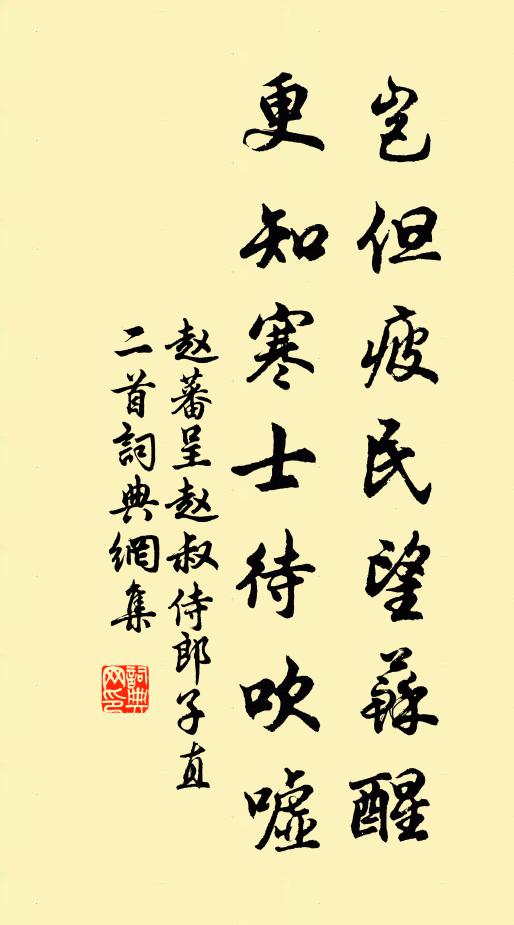 岂但疲民望蘇醒
更知寒士待吹嘘
赵蕃呈赵叔侍郎子直
二首詞典網集
詞典网印